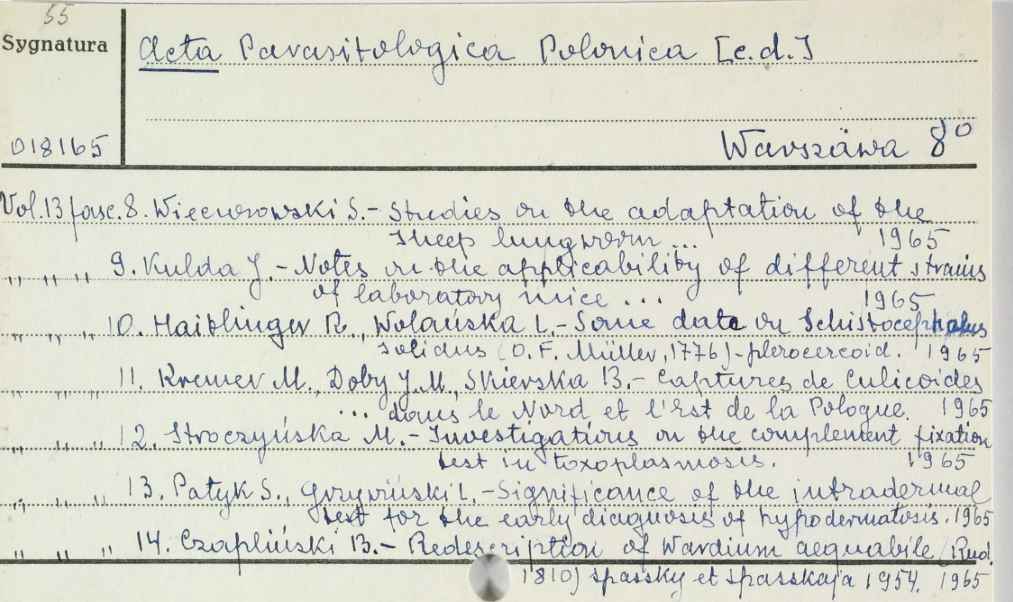 55
Sygnatura
Acta Parasitologica Polonica [c.d.]
018165
Warszawa 8°
Vol. 13 fasc. 8. Wiecurowski S. - Studies on the adaptation of the
sheep lungworm ... 1965
" " " 9. Kulda J. - Notes on the applicability of different strains
of laboratory mice ... 1965
" " " 10. Haitlinger R., Wolańska L. - Some data on Schistocephalus
solidus (O. F. Müller, 1776) - plerocercoid. 1965
" " " 11. Kremer M., Doby J.M., Skierska B. - Captures de Culicoides
... dans le Nord et l'Est de la Pologne. 1965
" " " 12. Stroczyńska M. - Investigations on the complement fixation
test in toxoplasmosis. 1965
" " " 13. Patyk S., Grzywiński L. - Significance of the intradermal
test for the early diagnosis of hypodermatosis. 1965
" " " 14. Czapliński B. - Redescription of Wardium aequabile /Rud.
1810) Spassky et Spasskaja 1954. 1965